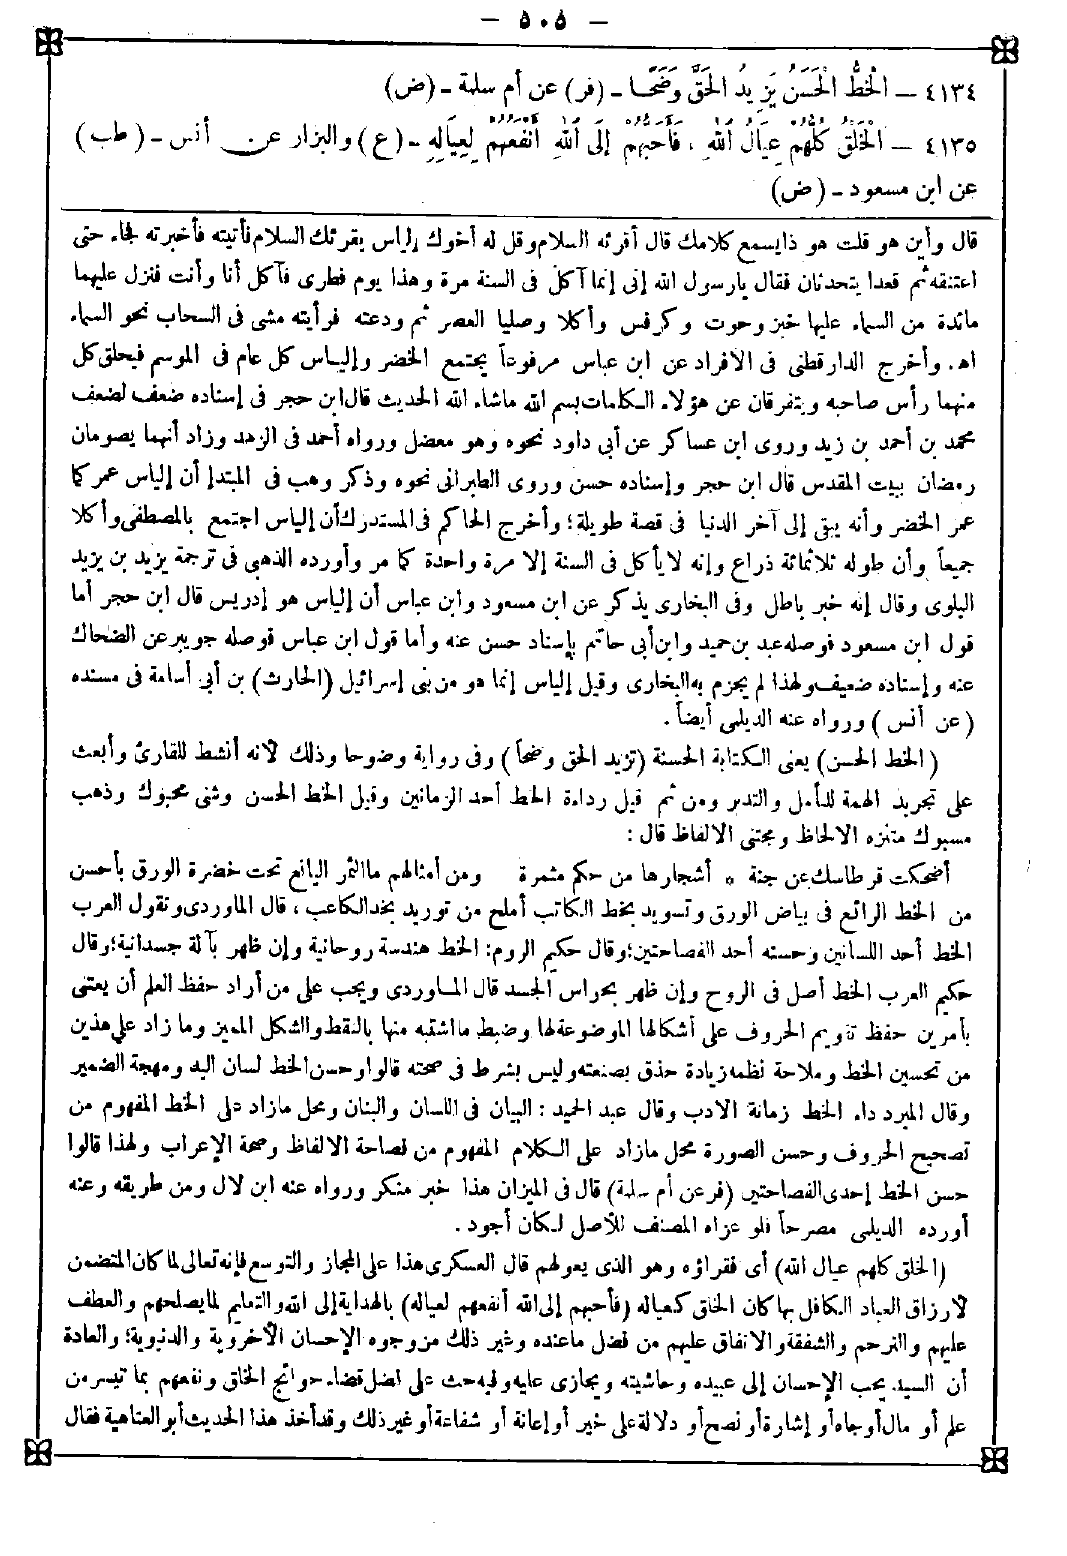 — ٥٠٥ —
٤١٣٤ — الْخَطُّ الْحَسَنُ يَزِيدُ الْحَقَّ وَضَحًا - (فر) عن أم سلمة - (ض)
٤١٣٥ — الْخَلْقُ كُلُّهُمْ عِيَالُ اللهِ ، فَأَحَبُّهُمْ إِلَى اللهِ أَنْفَعُهُمْ لِعِيَالِهِ - (ع) والبزار عن أنس - (طب)
عن ابن مسعود - (ض)
قال وأين هو قلت هو ذا يسمع كلامك قال أقرئه السلام وقل له أخوك إلياس يقرئك السلام فأتيته فأخبرته فجاء حتى
اعتنقه ثم قعدا يتحدثان فقال يارسول الله إنى إنما آكل فى السنة مرة وهذا يوم فطرى فآكل أنا وأنت فنزل عليهما
مائدة من السماء عليها خبز وحوت وكرفس وأكلا وصليا العصر ثم ودعته فرأيته مشى فى السحاب نحو السماء
اه. وأخرج الدارقطنى فى الأفراد عن ابن عباس مرفوعاً يجتمع الخضر وإلياس كل عام فى الموسم فيحلق كل
منهما رأس صاحبه ويتفرقان عن هؤلاء الكلمات بسم الله ماشاء الله الحديث قال ابن حجر فى إسناده ضعف لضعف
محمد بن أحمد بن زيد وروى ابن عساكر عن أبى داود نحوه وهو معضل ورواه أحمد فى الزهد وزاد أنهما يصومان
رمضان ببيت المقدس قال ابن حجر وإسناده حسن وروى الطبرانى نحوه وذكر وهب فى المبتدإ أن إلياس عمر كما
عمر الخضر وأنه يبقى إلى آخر الدنيا فى قصة طويلة؛ وأخرج الحاكم فى المستدرك أن إلياس اجتمع بالمصطفى وأكلا
جميعاً وأن طوله ثلاثمائة ذراع وإنه لايأكل فى السنة إلا مرة واحدة كما مر وأورده الذهبى فى ترجمة يزيد بن يزيد
البلوى وقال إنه خبر باطل وفى البخارى يذكر عن ابن مسعود وابن عباس أن إلياس هو إدريس قال ابن حجر أما
قول ابن مسعود فوصله عبد بن حميد وابن أبى حاتم بإسناد حسن عنه وأما قول ابن عباس فوصله جويبر عن الضحاك
عنه وإسناده ضعيف ولهذا لم يجزم به البخارى وقيل إلياس إنما هو من بنى إسرائيل (الحارث) بن أبى أسامة فى مسنده
(عن أنس) ورواه عنه الديلمى أيضاً .
(الخط الحسن) يعنى الكتابة الحسنة (تزيد الحق وضحاً) وفى رواية وضوحا وذلك لأنه أنشط للقارئ وأبعث
على تجريد الهمة للتأمل والتدبر ومن ثم قيل رداءة الخط أحد الزمانين وقيل الخط الحسن وشى محبوك وذهب
مسبوك متنزه الالحاظ ومجتنى الالفاظ قال :
أضحكت قرطاسك عن جنة * أشجارها من حكم مثمرة ومن أمثالهم ماالثمر اليانع تحت خضرة الورق بأحسن
من الخط الرائع فى بياض الورق وتسويد بخط الكاتب أملح من توريد بخد الكاعب ، قال الماوردى وتقول العرب
الخط أحد اللسانين وحسنه أحد الفصاحتين؛ وقال حكيم الروم: الخط هندسة روحانية وإن ظهر بآلة جسدانية؛ وقال
حكيم العرب الخط أصل فى الروح وإن ظهر بحراس الجسد قال الماوردى ويجب على من أراد حفظ العلم أن يعتنى
بأمرين حفظ تقويم الحروف على أشكالها الموضوعة لها وضبط مااشتبه منها بالنقط والشكل المميز وما زاد على هذين
من تحسين الخط وملاحة نظمه زيادة حذق بصنعته وليس بشرط فى صحته قالوا وحسن الخط لسان اليد ومهجة الضمير
وقال المبرد داء الخط زمانة الادب وقال عبد الحميد : البيان فى اللسان والبنان ومحل مازاد على الخط المفهوم من
تصحيح الحروف وحسن الصورة محل مازاد على الكلام المفهوم من فصاحة الالفاظ وصحة الإعراب ولهذا قالوا
حسن الخط إحدى الفصاحتين (فر عن أم سلمة) قال فى الميزان هذا خبر منكر ورواه عنه ابن لال ومن طريقه وعنه
أورده الديلمى مصرحاً فلو عزاه المصنف للأصل لكان أجود .
(الخلق كلهم عيال الله) أى فقراؤه وهو الذى يعولهم قال العسكرى هذا على المجاز والتوسع فإنه تعالى لما كان المتضمن
لارزاق العباد الكافل بها كان الخلق كعياله (فأحبهم إلى الله أنفعهم لعياله) بالهداية إلى الله والتعليم لما يصلحهم والعطف
عليهم والترحم والشفقة والانفاق عليهم من فضل ماعنده وغير ذلك من وجوه الإحسان الأخروية والدنيوية؛ والعادة
أن السيد يحب الإحسان إلى عبيده وحاشيته ويجازى عليه وفيه حث على فضل قضاء حوائج الخلق ونفعهم بما تيسر من
علم أو مال أوجاه أو إشارة أو نصح أو دلالة على خير أو إعانة أو شفاعة أو غير ذلك وقد أخذ هذا الحديث أبو العتاهية فقال